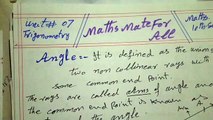 Unit # 07
Trigonometry
Maths Mate For
All
Maths
10th
Angle:- It is defined as the union
two non collinear rays with
some common end point.
The rays are called arms of angle and
the common end point is
the angle